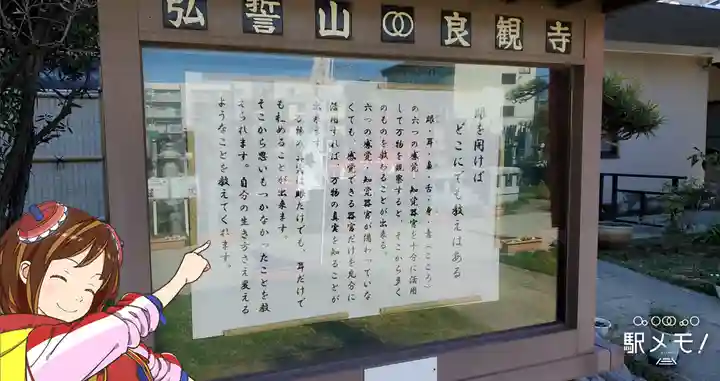 弘誓山 良観寺
眼を開けば
どこにでも教えはある
眼・耳・鼻・舌・身・意(こころ)
の六つの感覚・知覚器官を十分に活用
して万物を観察すると、そこから多く
のものを教わることが出来る。
六つの感覚・知覚器官が備わっていな
くても、感覚できる器官だけを充分に
活用すれば、万物の真実を知ることが
出来ます。
だけでも、耳だけで
も求めることが出来ます。
そこから思いもつかなかったことを教
えられます。自分の生き方さえ変える
ようなことを教えてくれます。
駅メモ!